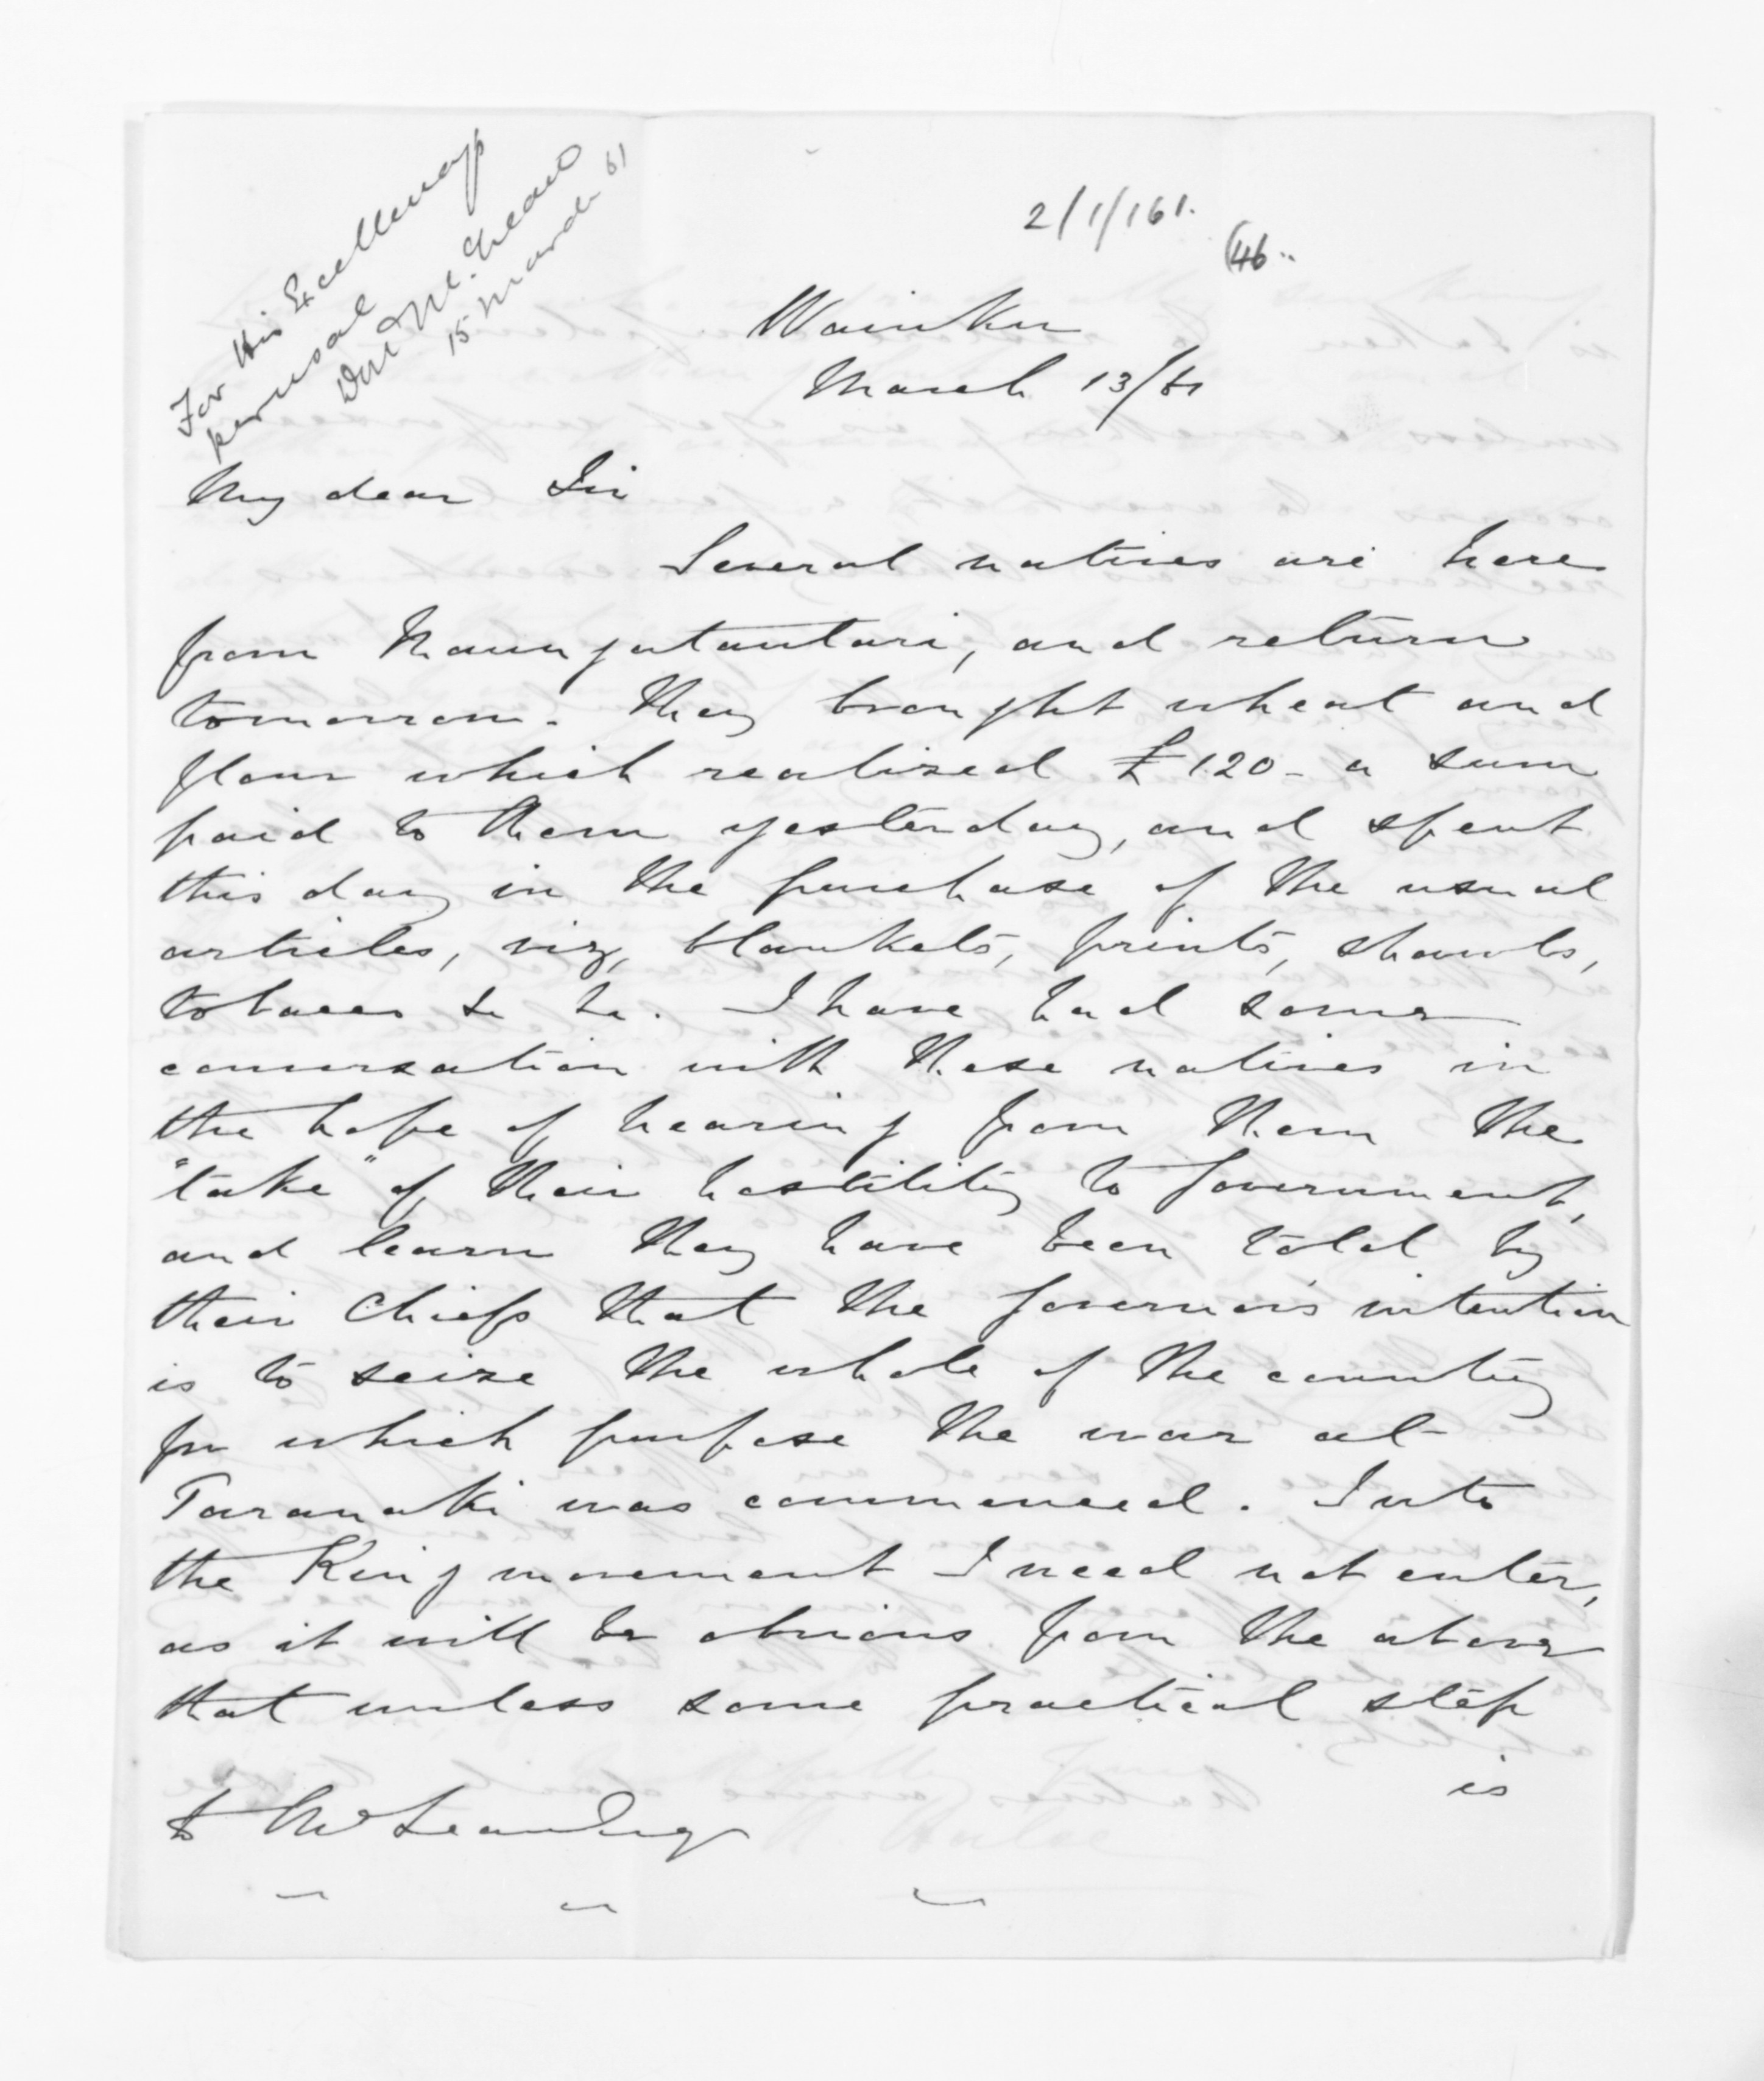 For His Excellency's
perusal
Donald McLean
15 March 61
2/1/161.
(46..
Waiuku
March 13/61
My dear Sir
Several natives are here
from Maungatautari, and return
tomorrow. They brought wheat and
flour which realized £120 - a sum
paid to them yesterday, and spent
this day in the purchase of the usual
articles, viz, blankets, prints, shawls,
tobacco &c &c. I have had some
conversation with these natives in
the hope of hearing from them the
"take" of their hostility to Government,
and learn they have been told by
their Chiefs that the Governor's intention
is to seize the whole of the country
for which purpose the war at
Taranaki was commenced. Into
the King movement I need not enter,
as it will be obvious from the above
that unless some practical step
is
D McLean Esq